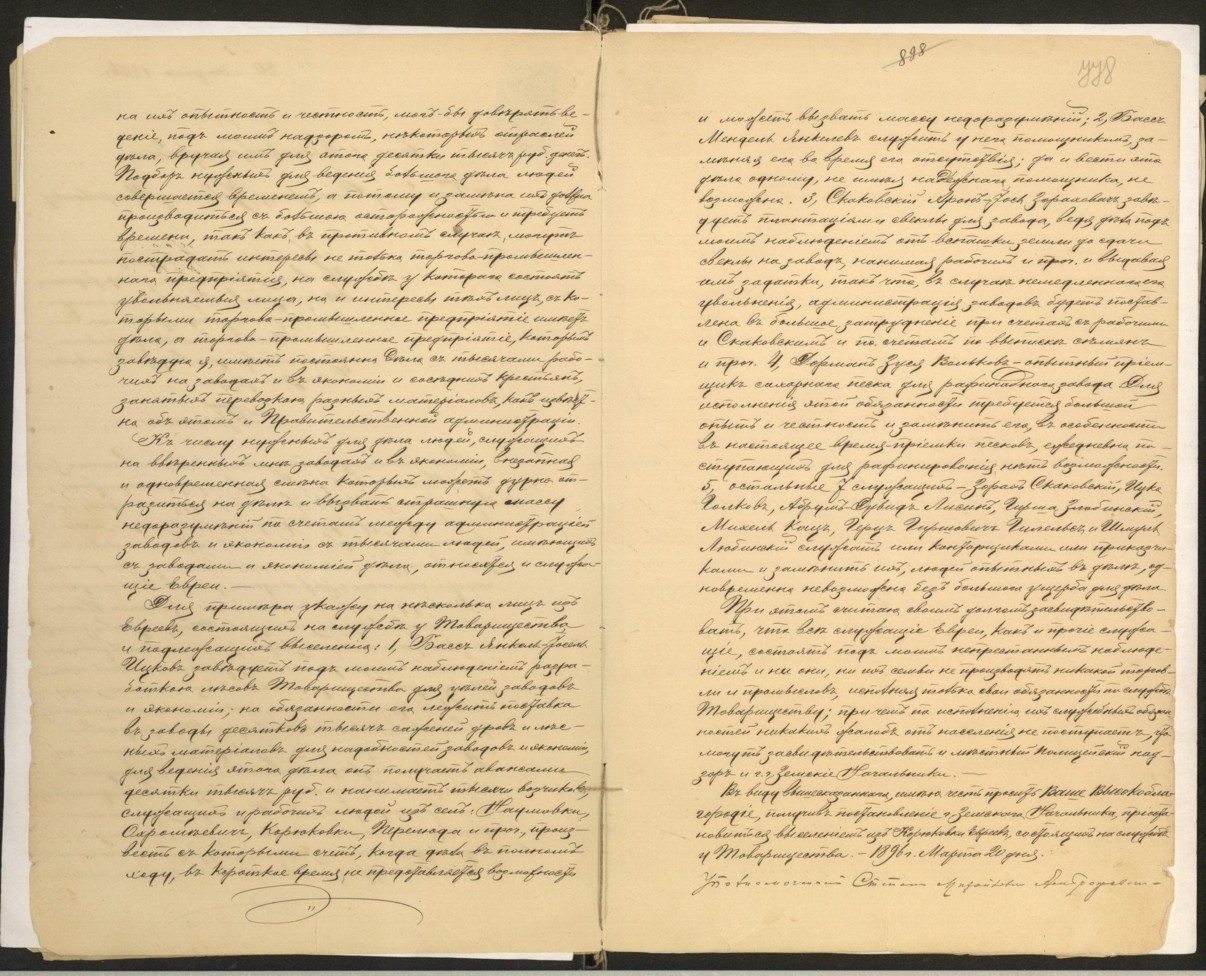 на ихъ опытность и честность, могъ-бы довѣрять ве-
деніе, подъ моимъ надзоромъ, нѣкоторыхъ отраслей
дѣла, вручая имъ для этого десятки тысячъ руб. денегъ.
Подборъ нужныхъ для веденія большого дѣла людей
совершается временемъ, а потому и замѣна ихъ должна
производиться съ большою осторожностью и требуетъ
времени, такъ какъ въ противномъ случаѣ, могутъ
пострадать интересы не только торгово-промышлен-
наго предпріятія, на службѣ у котораго состоятъ
увольняемыя лица, но и интересы тѣхъ лицъ, съ ко-
торыми торгово-промышленное предпріятіе имѣетъ
дѣла, а торгово-промышленное предпріятіе, которымъ
завѣдую я, имѣетъ постоянно дѣла съ тысячами рабо-
чихъ на заводахъ и въ экономіи и сосѣднихъ крестьянъ,
занятыхъ перевозкою разныхъ матеріаловъ, какъ извѣст-
но объ этомъ и Правительственной администраціи.
Къ числу нужныхъ для дѣла людей, служащихъ
на ввѣренныхъ мнѣ заводахъ и въ экономіи, внезапная
и одновременная смѣна которыхъ можетъ дурно от-
разиться на дѣлѣ и вызвать страшную массу
недоразумѣній по счетамъ между администраціей
заводовъ и экономіи съ тысячами людей, имѣющихъ
съ заводами и экономіей дѣла, относятся и служа-
щіе Евреи. —
Для примѣра укажу на нѣсколько лицъ изъ
Евреевъ, состоящихъ на службѣ у Товарищества
и подлежащихъ выселенію: 1, Бассъ Янкель-Іосель
Ицковъ завѣдуетъ подъ моимъ наблюденіемъ разра-
боткою лѣсовъ Товарищества для цѣлей заводовъ
и экономіи; на обязанности его лежитъ поставка
въ заводы десятковъ тысячъ саженей дровъ и лѣс-
ныхъ матеріаловъ для надобностей заводовъ и экономіи,
для веденія этого дѣла онъ получаетъ авансами
десятки тысячъ руб. и нанимаетъ тысячи возчиковъ,
служащихъ и рабочихъ людей изъ селъ: Наумовки,
Охромѣевичъ, Корюковки, Перелюба и проч, произ-
весть съ которыми счетъ, когда дѣло въ полномъ
ходу, въ короткое время не представляется возможности
898
778
и можетъ вызвать массу недоразумѣній; 2, Бассъ
Мендель Янкелевъ служитъ у него помощникомъ, за-
мѣняя его во время его отсутствія; да и вести это
дѣло одному, не имѣя надежнаго помощника, не
возможно. 3, Скаковскій Аронъ-Іось Зораховъ завѣ-
дуетъ плантаціями свеклы для завода, ведя дѣло подъ
моимъ наблюденіемъ отъ вспашки земли до сдачи
свеклы на заводъ, нанимая рабочихъ и проч. и выдавая
имъ задатки, такъ что, въ случаѣ немедленнаго его
увольненія, администрація заводовъ будетъ постав-
лена въ большое затрудненіе при счетахъ съ рабочими
и Скаковскимъ и по счетамъ по выпискѣ сѣмянъ
и проч. 4, Горманъ Зуся Вольковъ — опытный пріем-
щикъ сахарнаго песка для рафинаднаго завода. Для
исполненія этой обязанности требуется большой
опытъ и честность и замѣнить его, въ особенности
въ настоящее время — пріемки песковъ, ежедневно по-
ступающихъ для рафинированія нѣтъ возможности.
5, остальные 7 служащихъ — Зорахъ Скаковскій, Ицко
Голковъ, Абрумъ-Дувидъ Лисинъ, Гирша Злобинскій,
Михель Кацъ, Герцъ Гиршовичъ Гительсъ и Шмуль
Любинскій служатъ или конторщиками или приказчи-
ками и замѣнить ихъ, людей опытныхъ въ дѣлѣ, од-
новременно невозможно безъ большого ущерба для дѣла
При этомъ считаю своимъ долгомъ засвидѣтельство-
вать, что всѣ служащіе Евреи, какъ и прочіе служа-
щіе, состоятъ подъ моимъ непрестаннымъ наблюде-
ніемъ и ни они, ни ихъ семьи не производятъ никакой торгов-
ли и промысловъ, исполняя только свои обязанности по службѣ
Товариществу; при чемъ по исполненію ихъ служебныхъ обязан-
ностей никакихъ жалобъ отъ населенія не поступаетъ, что
могутъ засвидѣтельствовать и мѣстный Полицейскій над-
зоръ и г.г. Земскіе Начальники. —
Въ виду вышесказаннаго, имѣю честь просить Ваше Высокобла-
городіе, получивъ постановленіе г. Земскаго Начальника, пріоста-
новиться выселеніемъ изъ Корюковки Евреевъ, состоящихъ на службѣ
у Товарищества. — 1896 г. Марта 20 дня.
Уполномоченный